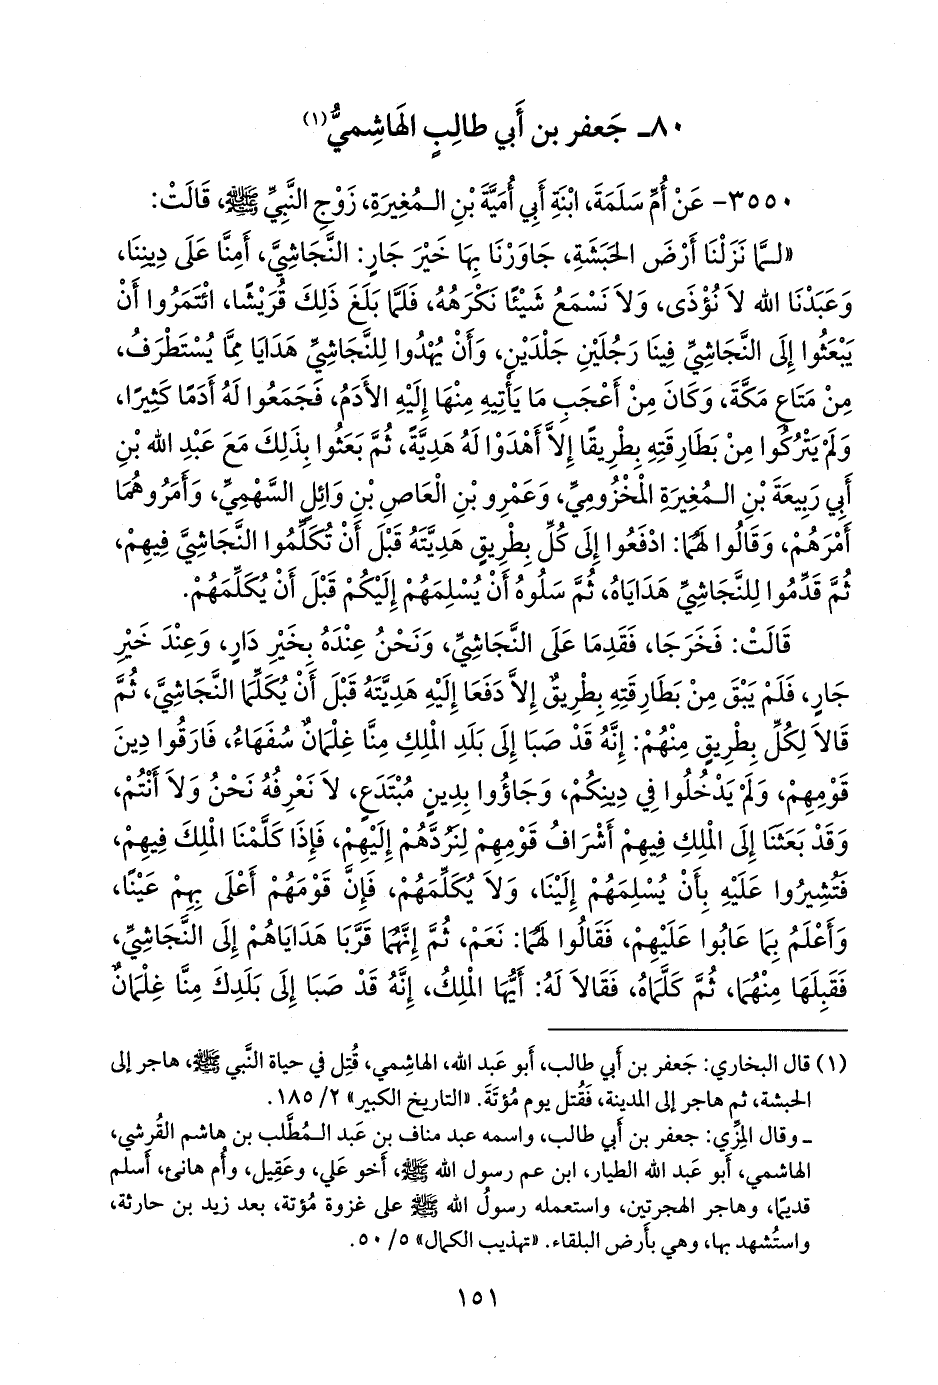 ٨٠ـ جَعفر بن أَبي طالِبٍ الهَاشِميُّ(١)
٣٥٥٠- عَنْ أُمِّ سَلَمَةَ، ابْنَةِ أَبِي أُمَيَّةَ بْنِ الـمُغِيرَةِ، زَوْجِ النَّبِيِّ ﷺ، قَالَتْ:
«لـمَّا نَزَلْنَا أَرْضَ الحَبَشَةِ، جَاوَرْنَا بِهَا خَيْرَ جَارٍ: النَّجَاشِيَّ، أَمِنَّا عَلَى دِينِنَا،
وَعَبَدْنَا الله لاَ نُؤْذَى، وَلاَ نَسْمَعُ شَيْئًا نَكْرَهُهُ، فَلَمَّا بَلَغَ ذَلِكَ قُرَيْشًا، ائْتَمَرُوا أَنْ
يَبْعَثُوا إِلَى النَّجَاشِيِّ فِينَا رَجُلَيْنِ جَلْدَيْنِ، وَأَنْ يُهْدُوا لِلنَّجَاشِيِّ هَدَايَا مِمَّا يُسْتَطْرَفُ،
مِنْ مَتَاعِ مَكَّةَ، وَكَانَ مِنْ أَعْجَبِ مَا يَأْتِيهِ مِنْهَا إِلَيْهِ الأَدَمُ، فَجَمَعُوا لَهُ أَدَمًا كَثِيرًا،
وَلَمْ يَتْرُكُوا مِنْ بَطَارِقَتِهِ بِطْرِيقًا إِلاَّ أَهْدَوْا لَهُ هَدِيَّةً، ثُمَّ بَعَثُوا بِذَلِكَ مَعَ عَبْدِ الله بْنِ
أَبِي رَبِيعَةَ بْنِ الـمُغِيرَةِ الْمَخْزُومِيِّ، وَعَمْرِو بْنِ الْعَاصِ بْنِ وَائِلٍ السَّهْمِيِّ، وَأَمَرُوهُمَا
أَمْرَهُمْ، وَقَالُوا لَهُمَا: ادْفَعُوا إِلَى كُلِّ بِطْرِيقٍ هَدِيَّتَهُ قَبْلَ أَنْ تُكَلِّمُوا النَّجَاشِيَّ فِيهِمْ،
ثُمَّ قَدِّمُوا لِلنَّجَاشِيِّ هَدَايَاهُ، ثُمَّ سَلُوهُ أَنْ يُسْلِمَهُمْ إِلَيْكُمْ قَبْلَ أَنْ يُكَلِّمَهُمْ.
قَالَتْ: فَخَرَجَا، فَقَدِمَا عَلَى النَّجَاشِيِّ، وَنَحْنُ عِنْدَهُ بِخَيْرِ دَارٍ، وَعِنْدَ خَيْرِ
جَارٍ، فَلَمْ يَبْقَ مِنْ بَطَارِقَتِهِ بِطْرِيقٌ إِلاَّ دَفَعَا إِلَيْهِ هَدِيَّتَهُ قَبْلَ أَنْ يُكَلِّمَا النَّجَاشِيَّ، ثُمَّ
قَالاَ لِكُلِّ بِطْرِيقٍ مِنْهُمْ: إِنَّهُ قَدْ صَبَا إِلَى بَلَدِ الْمَلِكِ مِنَّا غِلْمَانٌ سُفَهَاءُ، فَارَقُوا دِينَ
قَوْمِهِمْ، وَلَمْ يَدْخُلُوا فِي دِينِكُمْ، وَجَاؤُوا بِدِينٍ مُبْتَدَعٍ، لاَ نَعْرِفُهُ نَحْنُ وَلاَ أَنْتُمْ،
وَقَدْ بَعَثَنَا إِلَى الْمَلِكِ فِيهِمْ أَشْرَافُ قَوْمِهِمْ لِنَرُدَّهُمْ إِلَيْهِمْ، فَإِذَا كَلَّمْنَا الْمَلِكَ فِيهِمْ،
فَتُشِيرُوا عَلَيْهِ بِأَنْ يُسْلِمَهُمْ إِلَيْنَا، وَلاَ يُكَلِّمَهُمْ، فَإِنَّ قَوْمَهُمْ أَعْلَى بِهِمْ عَيْنًا،
وَأَعْلَمُ بِمَا عَابُوا عَلَيْهِمْ، فَقَالُوا لَهُمَا: نَعَمْ، ثُمَّ إِنَّهُمَا قَرَّبَا هَدَايَاهُمْ إِلَى النَّجَاشِيِّ،
فَقَبِلَهَا مِنْهُمَا، ثُمَّ كَلَّمَاهُ، فَقَالاَ لَهُ: أَيُّهَا الْمَلِكُ، إِنَّهُ قَدْ صَبَا إِلَى بَلَدِكَ مِنَّا غِلْمَانٌ
(١) قال البخاري: جَعفر بن أَبي طالب، أَبو عَبد الله، الهاشمي، قُتِل في حياة النَّبي ﷺ، هاجر إلى
الحبشة، ثم هاجر إلى المدينة، فَقُتل يوم مُؤتَةَ. «التاريخ الكبير» ٢/ ١٨٥.
ـ وقال المِزِّي: جعفر بن أَبي طالب، واسمه عبد مناف بن عَبد الـمُطَّلب بن هاشم القُرشي،
الهاشمي، أَبو عَبد الله الطيار، ابن عم رسول الله ﷺ، أَخو عَلي، وعَقِيل، وأُم هانئ، أَسلم
قديمًا، وهاجر الهجرتين، واستعمله رسولُ الله ﷺ على غزوة مُؤتة، بعد زيد بن حارثة،
واستُشهد بها، وهي بأَرض البلقاء. «تهذيب الكمال» ٥/ ٥٠.
١٥١